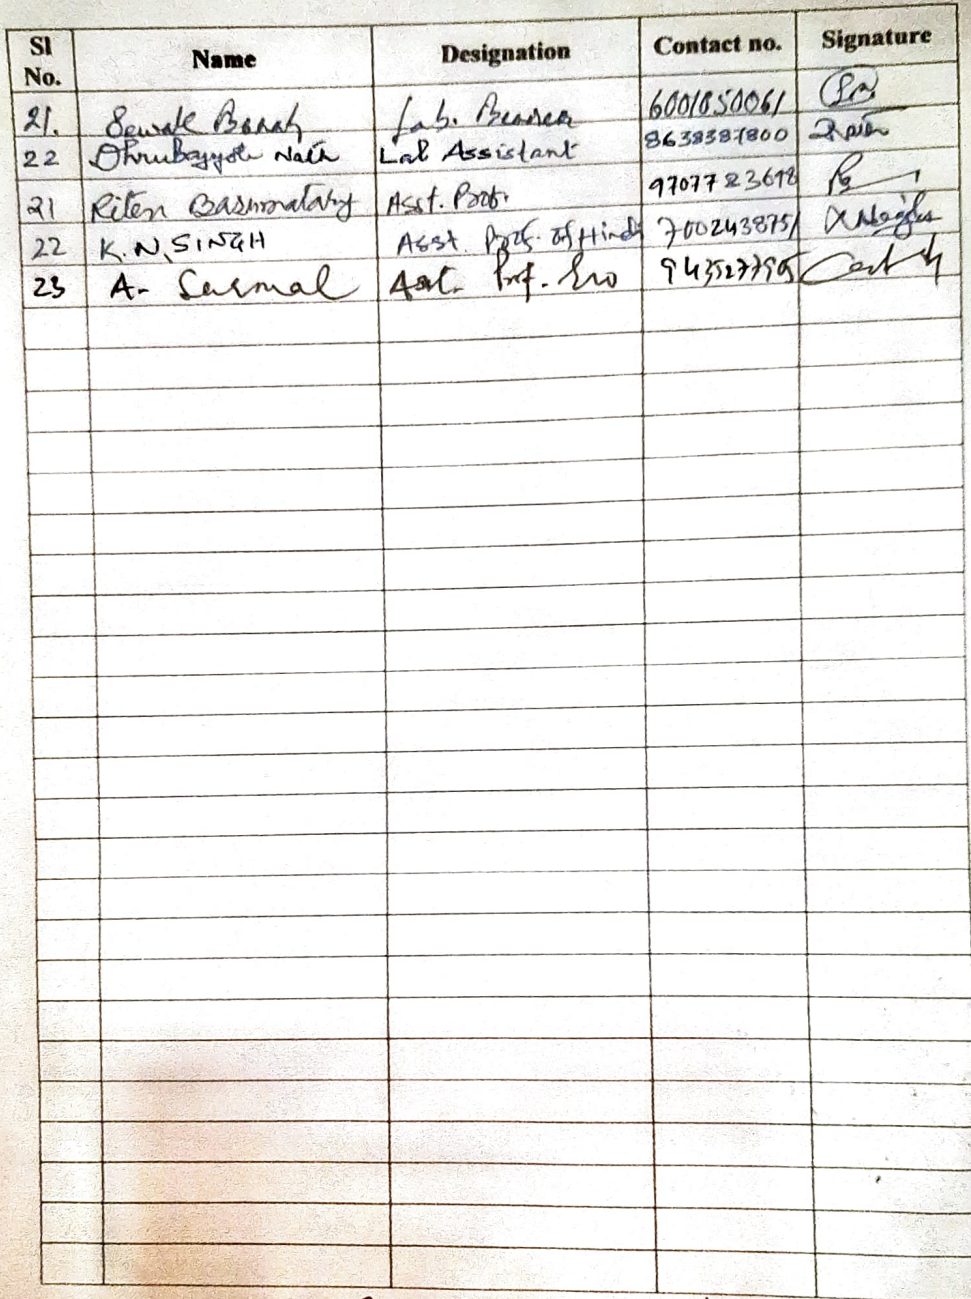 Sl No. Name Designation Contact no. Signature
21. Sewak Borah Lab. Bearer 6001050061
22 Dhrubajyoti Nath Lab Assistant 8638387800 DNath
21 Riten Basumatary Asst. Prof. 9707723618
22 K.N. SINGH Asst. Prof. of Hindi 7002438751
23 A. Sarmal Asst. Prof. 9435277595